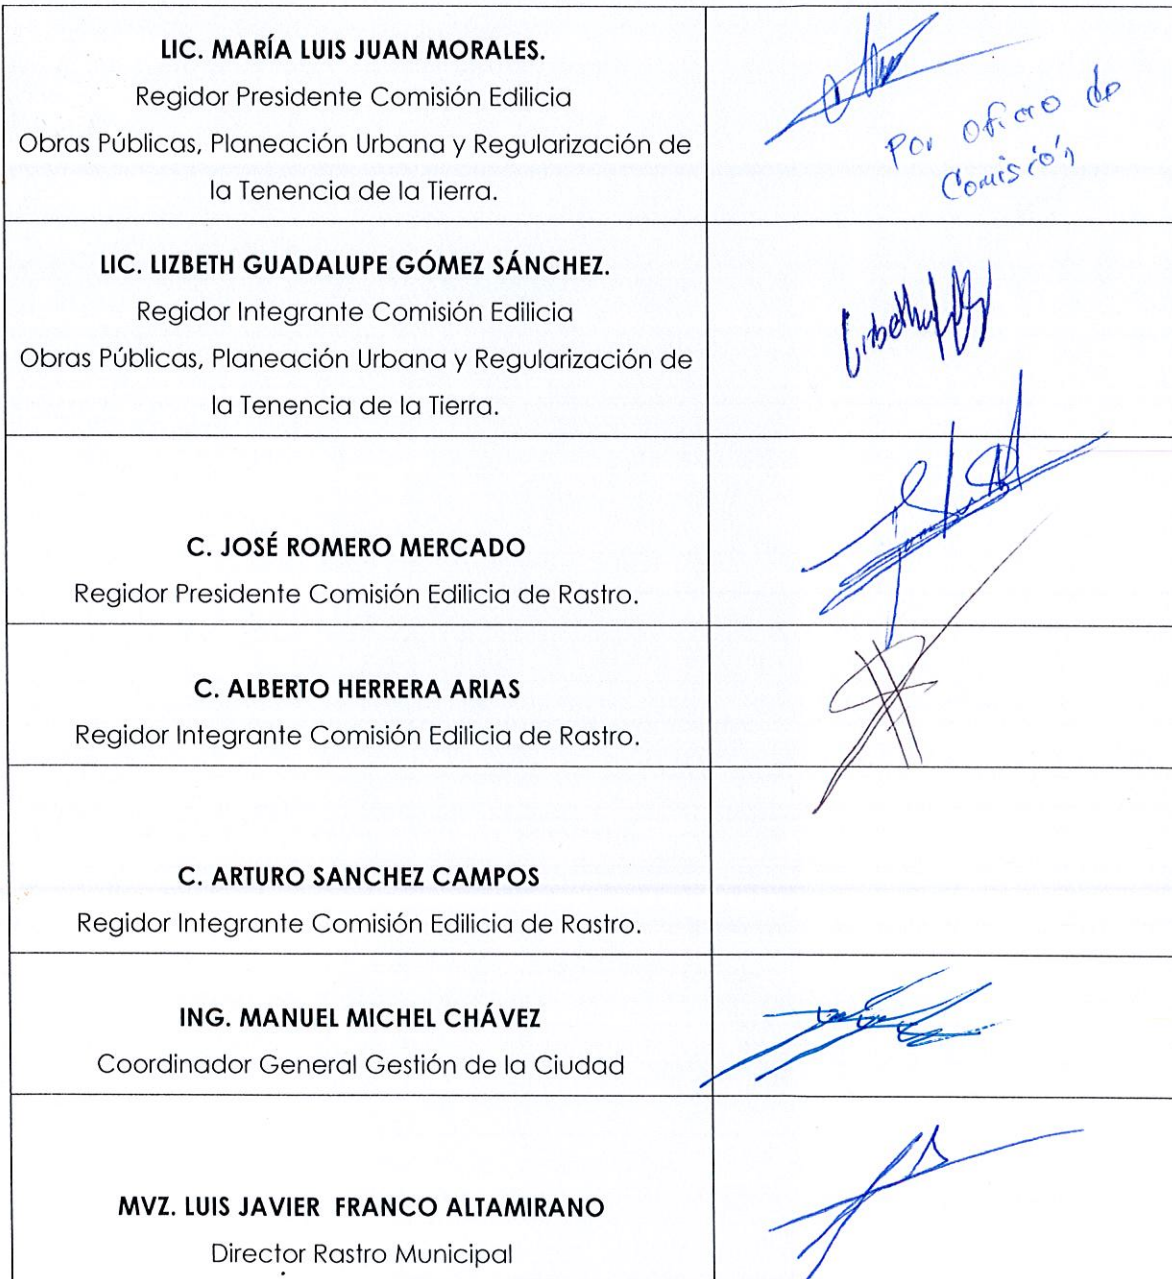 LIC. MARÍA LUIS JUAN MORALES.
Regidor Presidente Comisión Edilicia
Obras Públicas, Planeación Urbana y Regularización de
la Tenencia de la Tierra.
Por oficio de
Comisión
LIC. LIZBETH GUADALUPE GÓMEZ SÁNCHEZ.
Regidor Integrante Comisión Edilicia
Obras Públicas, Planeación Urbana y Regularización de
la Tenencia de la Tierra.
C. JOSÉ ROMERO MERCADO
Regidor Presidente Comisión Edilicia de Rastro.
C. ALBERTO HERRERA ARIAS
Regidor Integrante Comisión Edilicia de Rastro.
C. ARTURO SANCHEZ CAMPOS
Regidor Integrante Comisión Edilicia de Rastro.
ING. MANUEL MICHEL CHÁVEZ
Coordinador General Gestión de la Ciudad
MVZ. LUIS JAVIER  FRANCO ALTAMIRANO
Director Rastro Municipal